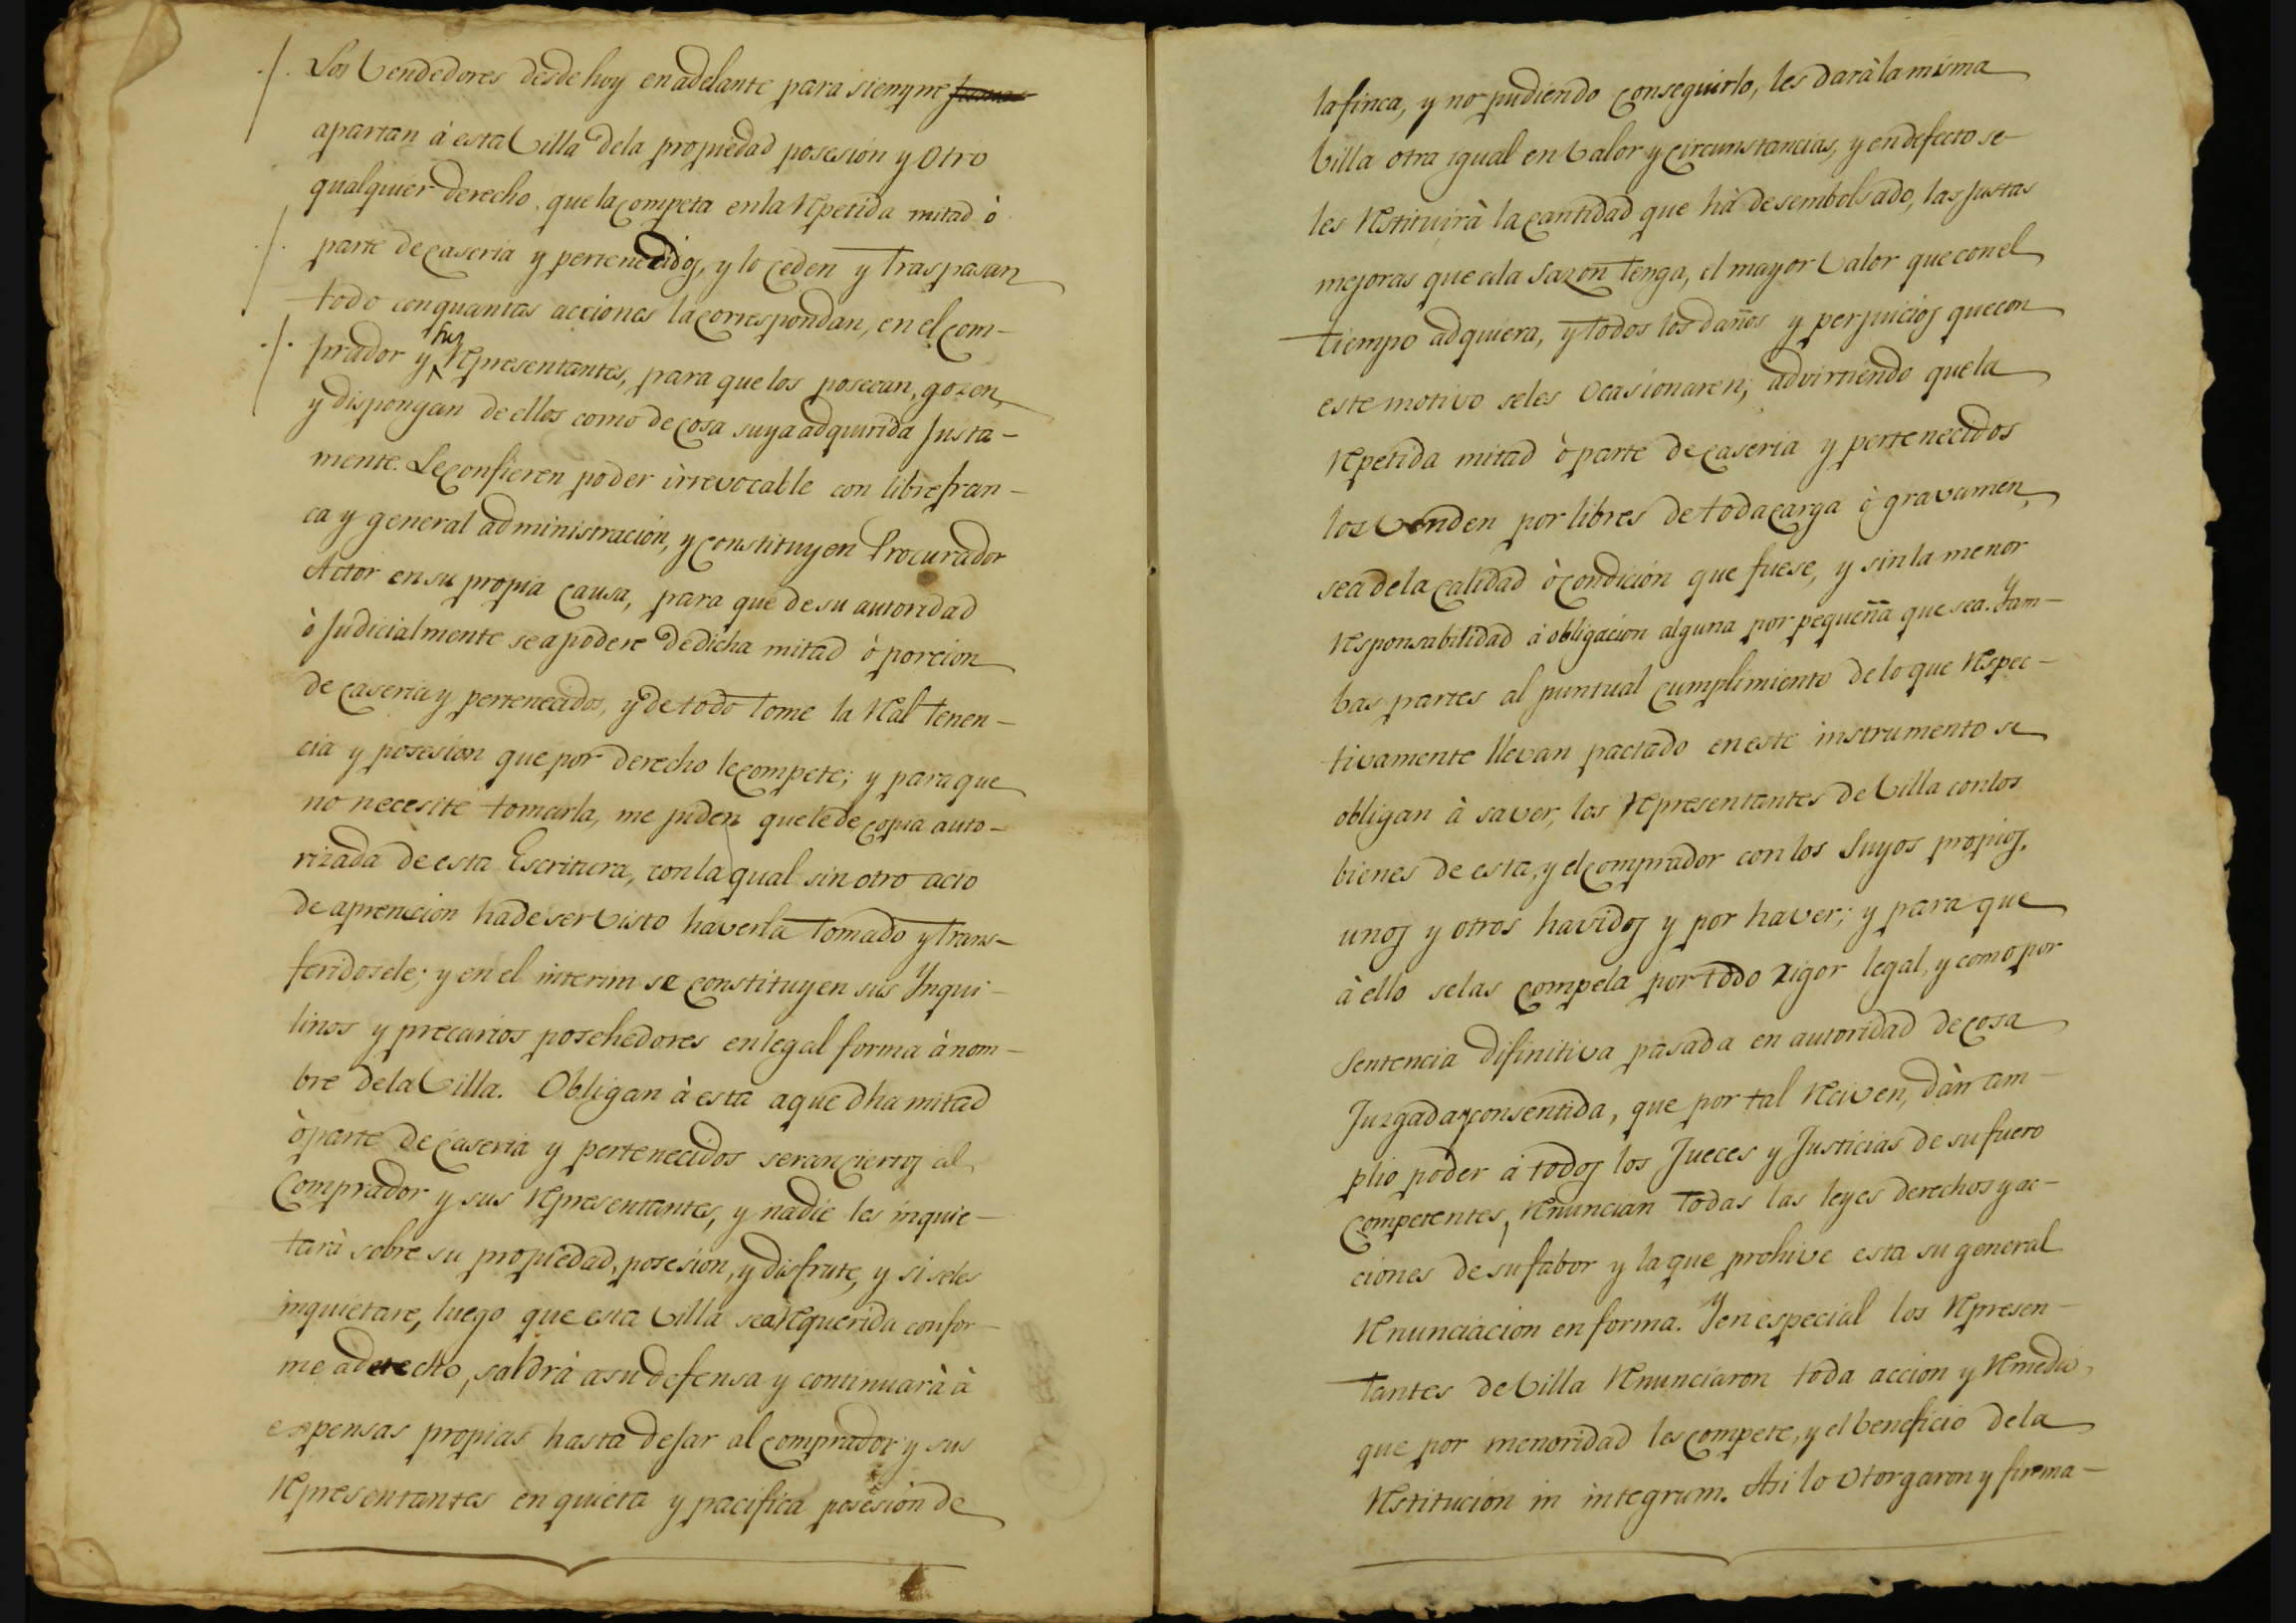 Los Vendedores desde hoy en adelante para siempre
apartan à esta Villa dela propiedad posesion y Otro
qualquier derecho que la competa en la Repetida mitad ò
parte de caseria y pertenecidos, y lo ceden y traspasan
todo con quantas acciones la correspondan, en el com-
prador y sus Representantes, para que los posecan, gozen,
y dispongan de ellos como de cosa suya adquirida Justa-
mente. Le confieren poder irrevocable con libre fran-
ca y general administracion, y constituyen Procurador
Actor en su propia causa, para que de su autoridad
ò Judicialmente se apodere de dicha mitad ò porcion
de caseria y pertenecidos, y de todo tome la Real tenen-
cia y posesion que por derecho le compete; y para que
no necesite tomarla, me piden que le de copia auto-
rizada de esta Escritura, con la qual sin otro acto
de aprension ha de ser Visto haverla tomado y trans-
feridosele; y en el interim se constituyen sus Ynqui-
linos y precarios posehedores en legal forma à nom-
bre de la Villa. Obligan à esta a que dha mitad
ò parte de caseria y pertenecidos seran ciertos al
Comprador y sus Representantes, y nadie les inquie-
tarà sobre su propiedad, posesion, y disfrute, y si seles
inquietare, luego que esta Villa sea Requerida confor-
me a derecho, saldrà a su defensa y continuarà à
expensas propias hasta dejar al comprador y sus
Representantes en quieta y pacifica posesion de
la finca, y no pudiendo conseguirlo, les darà la misma
Villa otra igual en Valor y circunstancias, y en defecto se
les Restituirà la cantidad que hà desembolsado, las Justas
mejoras que ala sazon tenga, el mayor Valor que con el
tiempo adquiera, y todos los daños y perjuicios que con
este motivo seles Ocasionaren; advirtiendo que la
Repetida mitad ò parte de caseria y pertenecidos
los Venden por libres de toda carga ò gravamen,
sea de la calidad ò condicion que fuese, y sin la menor
Responsabilidad à obligacion alguna por pequeña que sea. Yam-
bas partes al puntual cumplimiento de lo que Respec-
tivamente llevan pactado en este instrumento se
obligan à saver, los Representantes de Villa con los
bienes de esta, y el comprador con los Suyos propios,
unos y otros havidos y por haver; y para que
à ello selas compela por todo rigor legal, y como por
Sentencia difinitiva pasada en autoridad de cosa
Juzgada y consentida, que por tal Reciven, dàn am-
plio poder à todos los Jueces y Justicias de su fuero
competentes, Renuncian todas las leyes derechos y ac-
ciones de su fabor y la que prohive esta su general
Renunciacion en forma. Y en especial los Represen-
tantes de Villa Renunciaron toda accion y Remedio,
que por menoridad les compete, y el beneficio de la
Restitucion in integrum. Asi lo Otorgaron y firma-